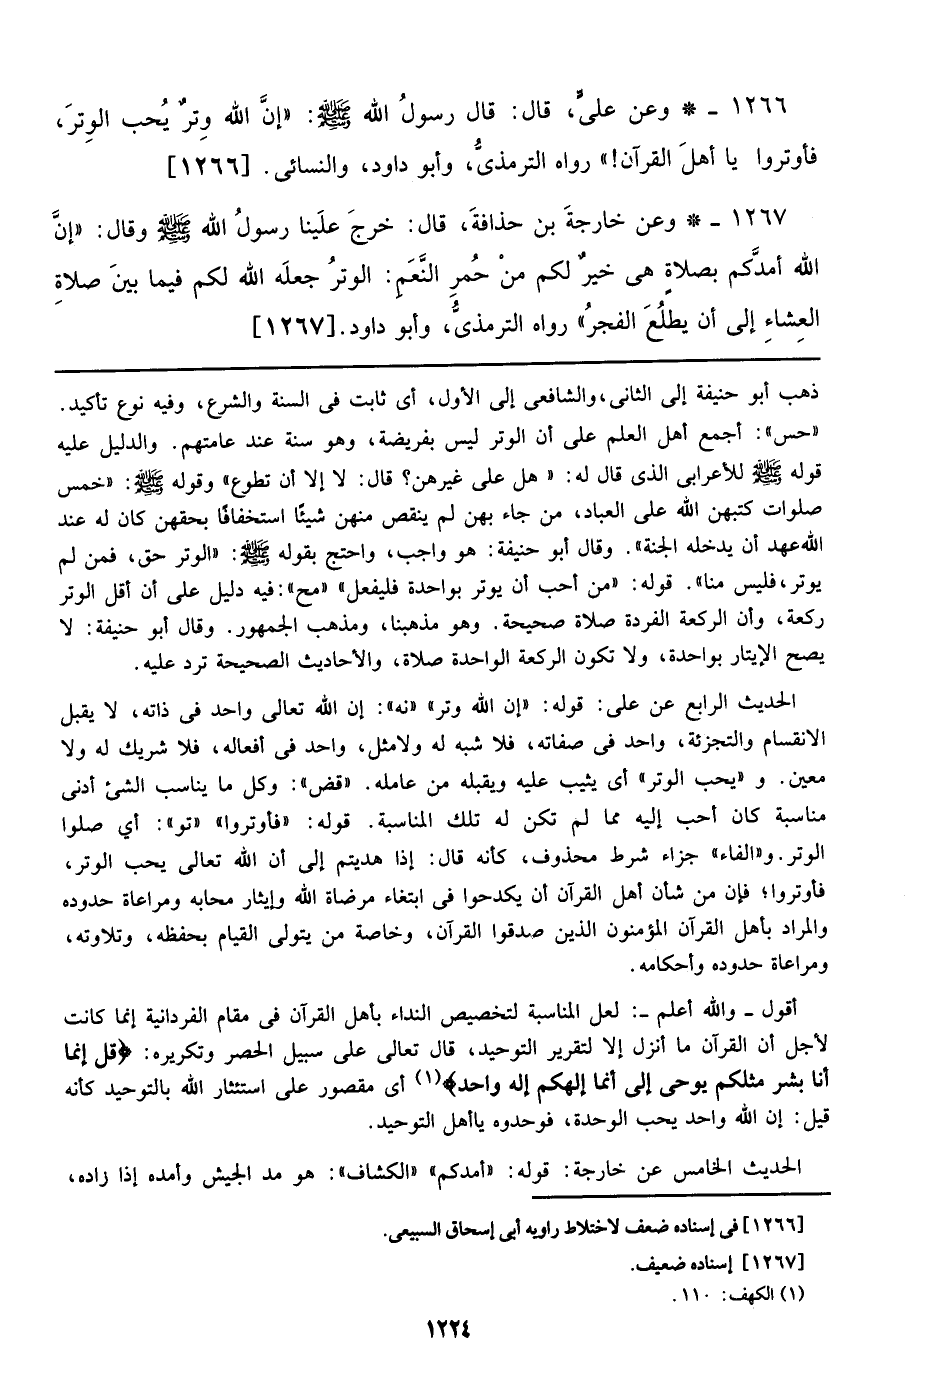 ١٢٦٦ ـ * وعن علىٍّ، قال: قال رسولُ الله ﷺ: «إنَّ الله وِترٌ يُحب الوِترَ،
فأوتروا يا أهلَ القرآن!» رواه الترمذىُّ، وأبو داود، والنسائى. [١٢٦٦]
١٢٦٧ ـ * وعن خارجةَ بن حذافةَ، قال: خرجَ علَينا رسولُ الله ﷺ وقال: «إنَّ
الله أمدَّكم بصلاةٍ هى خيرٌ لكم منْ حُمرِ النَّعَمِ: الوترُ جعلَه الله لكم فيما بينَ صلاةِ
العِشاءِ إلى أن يطلُعَ الفجرُ» رواه الترمذىُّ، وأبو داود.[١٢٦٧]
ذهب أبو حنيفة إلى الثانى،والشافعى إلى الأول، أى ثابت فى السنة والشرع، وفيه نوع تأكيد.
«حس»: أجمع أهل العلم على أن الوتر ليس بفريضة، وهو سنة عند عامتهم. والدليل عليه
قوله ﷺ للأعرابى الذى قال له: « هل على غيرهن؟ قال: لا إلا أن تطوع» وقوله ﷺ: «خمس
صلوات كتبهن الله على العباد، من جاء بهن لم ينقص منهن شيئًا استخفافًا بحقهن كان له عند
الله عهد أن يدخله الجنة». وقال أبو حنيفة: هو واجب، واحتج بقوله ﷺ: «الوتر حق، فمن لم
يوتر،فليس منا». قوله: «من أحب أن يوتر بواحدة فليفعل» «مح»:فيه دليل على أن أقل الوتر
ركعة، وأن الركعة الفردة صلاة صحيحة. وهو مذهبنا، ومذهب الجمهور. وقال أبو حنيفة: لا
يصح الإيتار بواحدة، ولا تكون الركعة الواحدة صلاة، والأحاديث الصحيحة ترد عليه.
الحديث الرابع عن على: قوله: «إن الله وتر» «نه»: إن الله تعالى واحد فى ذاته، لا يقبل
الانقسام والتجزئة، واحد فى صفاته، فلا شبه له ولامثل، واحد فى أفعاله، فلا شريك له ولا
معين. و «يحب الوتر» أى يثيب عليه ويقبله من عامله. «قض»: وكل ما يناسب الشئ أدنى
مناسبة كان أحب إليه مما لم تكن له تلك المناسبة. قوله: «فأوتروا» «تو»: أي صلوا
الوتر.و«الفاء» جزاء شرط محذوف، كأنه قال: إذا هديتم إلى أن الله تعالى يحب الوتر،
فأوتروا؛ فإن من شأن أهل القرآن أن يكدحوا فى ابتغاء مرضاة الله وإيثار محابه ومراعاة حدوده
والمراد بأهل القرآن المؤمنون الذين صدقوا القرآن، وخاصة من يتولى القيام بحفظه، وتلاوته،
ومراعاة حدوده وأحكامه.
أقول ـ والله أعلم ـ: لعل المناسبة لتخصيص النداء بأهل القرآن فى مقام الفردانية إنما كانت
لأجل أن القرآن ما أنزل إلا لتقرير التوحيد، قال تعالى على سبيل الحصر وتكريره: ﴿قل إنما
أنا بشر مثلكم يوحى إلى أنما إلهكم إله واحد﴾(١) أى مقصور على استئثار الله بالتوحيد كأنه
قيل: إن الله واحد يحب الوحدة، فوحدوه ياأهل التوحيد.
الحديث الخامس عن خارجة: قوله: «أمدكم» «الكشاف»: هو مد الجيش وأمده إذا زاده،
[١٢٦٦] فى إسناده ضعف لاختلاط راويه أبى إسحاق السبيعى.
[١٢٦٧] إسناده ضعيف.
(١) الكهف: ١١٠.
١٢٢٤